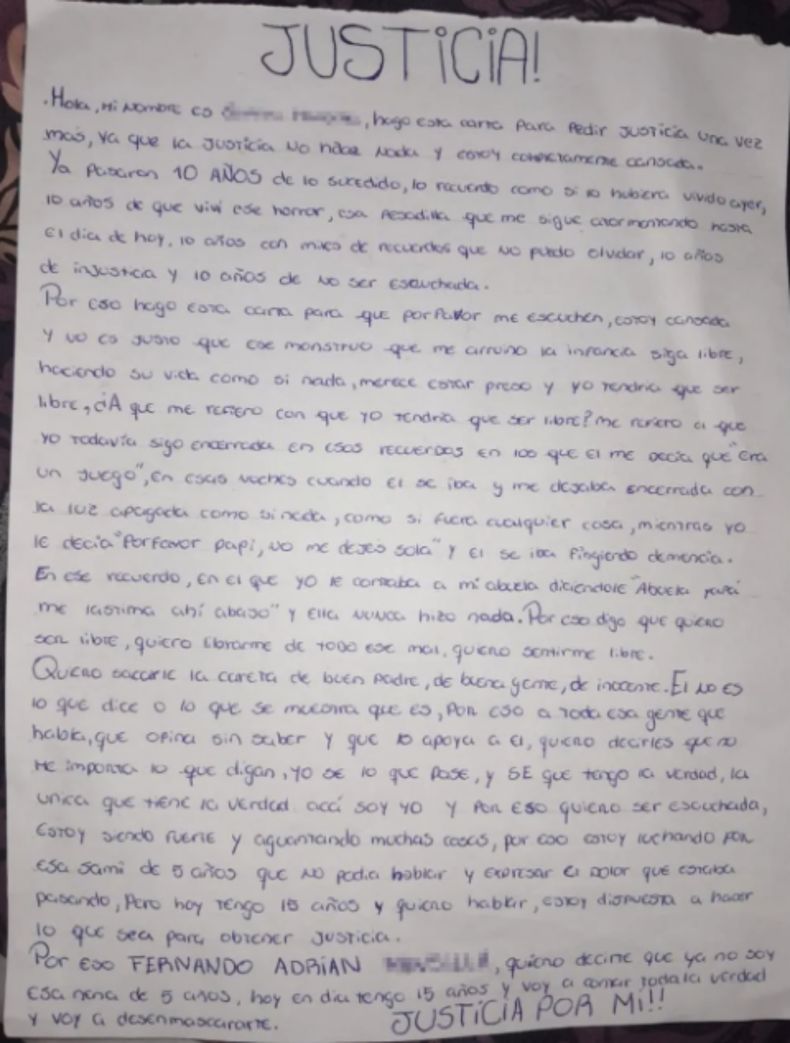 JUSTICIA!
. Hola, mi nombre es , hago esta carta para pedir justicia una vez
más, ya que la justicia no hace nada y estoy completamente cansada.
Ya pasaron 10 AÑOS de lo sucedido, lo recuerdo como si lo hubiera vivido ayer,
10 años de que viví ese horror, esa pesadilla que me sigue atormentando hasta
el día de hoy, 10 años con miles de recuerdos que no puedo olvidar, 10 años
de injusticia y 10 años de no ser escuchada.
Por eso hago esta carta para que porfavor me escuchen, estoy cansada
y no es justo que ese monstruo que me arruino la infancia siga libre,
haciendo su vida como si nada, merece estar preso y yo tendria que ser
libre, ¿A que me refiero con que yo tendria que ser libre? me refiero a que
yo todavía sigo encerrada en esos recuerdos en los que el me decía que "era
un juego", en esas noches cuando el se iba y me dejaba encerrada con
la luz apagada como si nada, como si fuera cualquier cosa, mientras yo
le decía "Porfavor papi, no me dejes sola" y el se iba fingiendo demencia.
En ese recuerdo, en el que yo le contaba a mi abuela diciendole "Abuela papá
me lastima ahí abajo" y ella nunca hizo nada. Por eso digo que quiero
ser libre, quiero librarme de todo ese mal, quiero sentirme libre.
Quiero sacarle la careta de buen padre, de buena gente, de inocente. El no es
lo que dice o lo que se muestra que es, por eso a toda esa gente que
habla, que opina sin saber y que lo apoya a el, quiero decirles que no
me importa lo que digan, yo se lo que pase, y SE que tengo la verdad, la
unica que tiene la verdad acá soy yo y por eso quiero ser escuchada,
estoy siendo fuerte y aguantando muchas cosas, por eso estoy luchando por
esa sami de 5 años que no podia hablar y expresar el dolor que estaba
pasando, pero hoy tengo 15 años y quiero hablar, estoy dispuesta a hacer
lo que sea para obtener justicia.
Por eso FERNANDO ADRIAN , quiero decirte que ya no soy
esa nena de 5 años, hoy en dia tengo 15 años y voy a contar toda la verdad
y voy a desenmascararte.
JUSTICIA POR MI!!